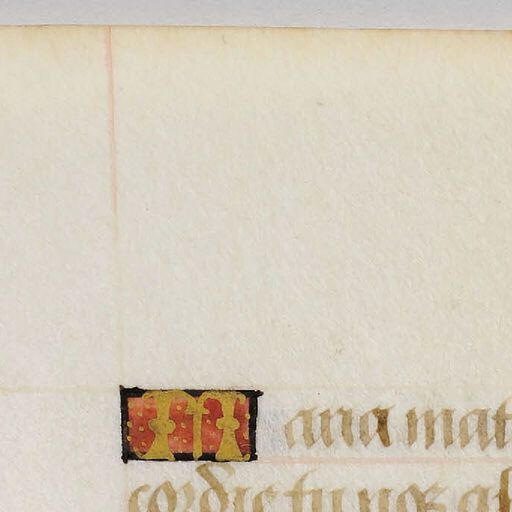 Maria mat
cordie tu nos ab